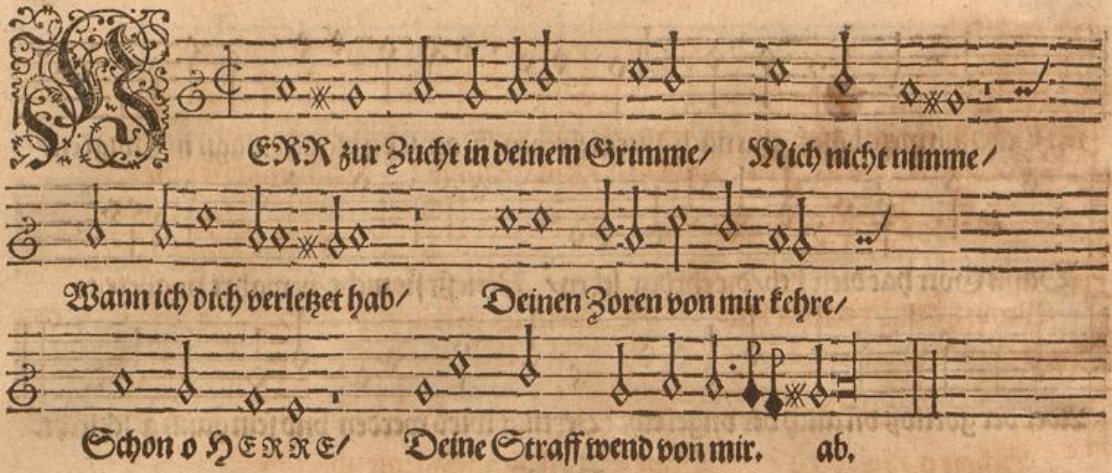 HERR zur Zucht in deinem Grimme/ Mich nicht nimme/
Wann ich dich verletzet hab/ Deinen Zoren von mir kehre/
Schon o HERRE/ Deine Straff wend von mir. ab.